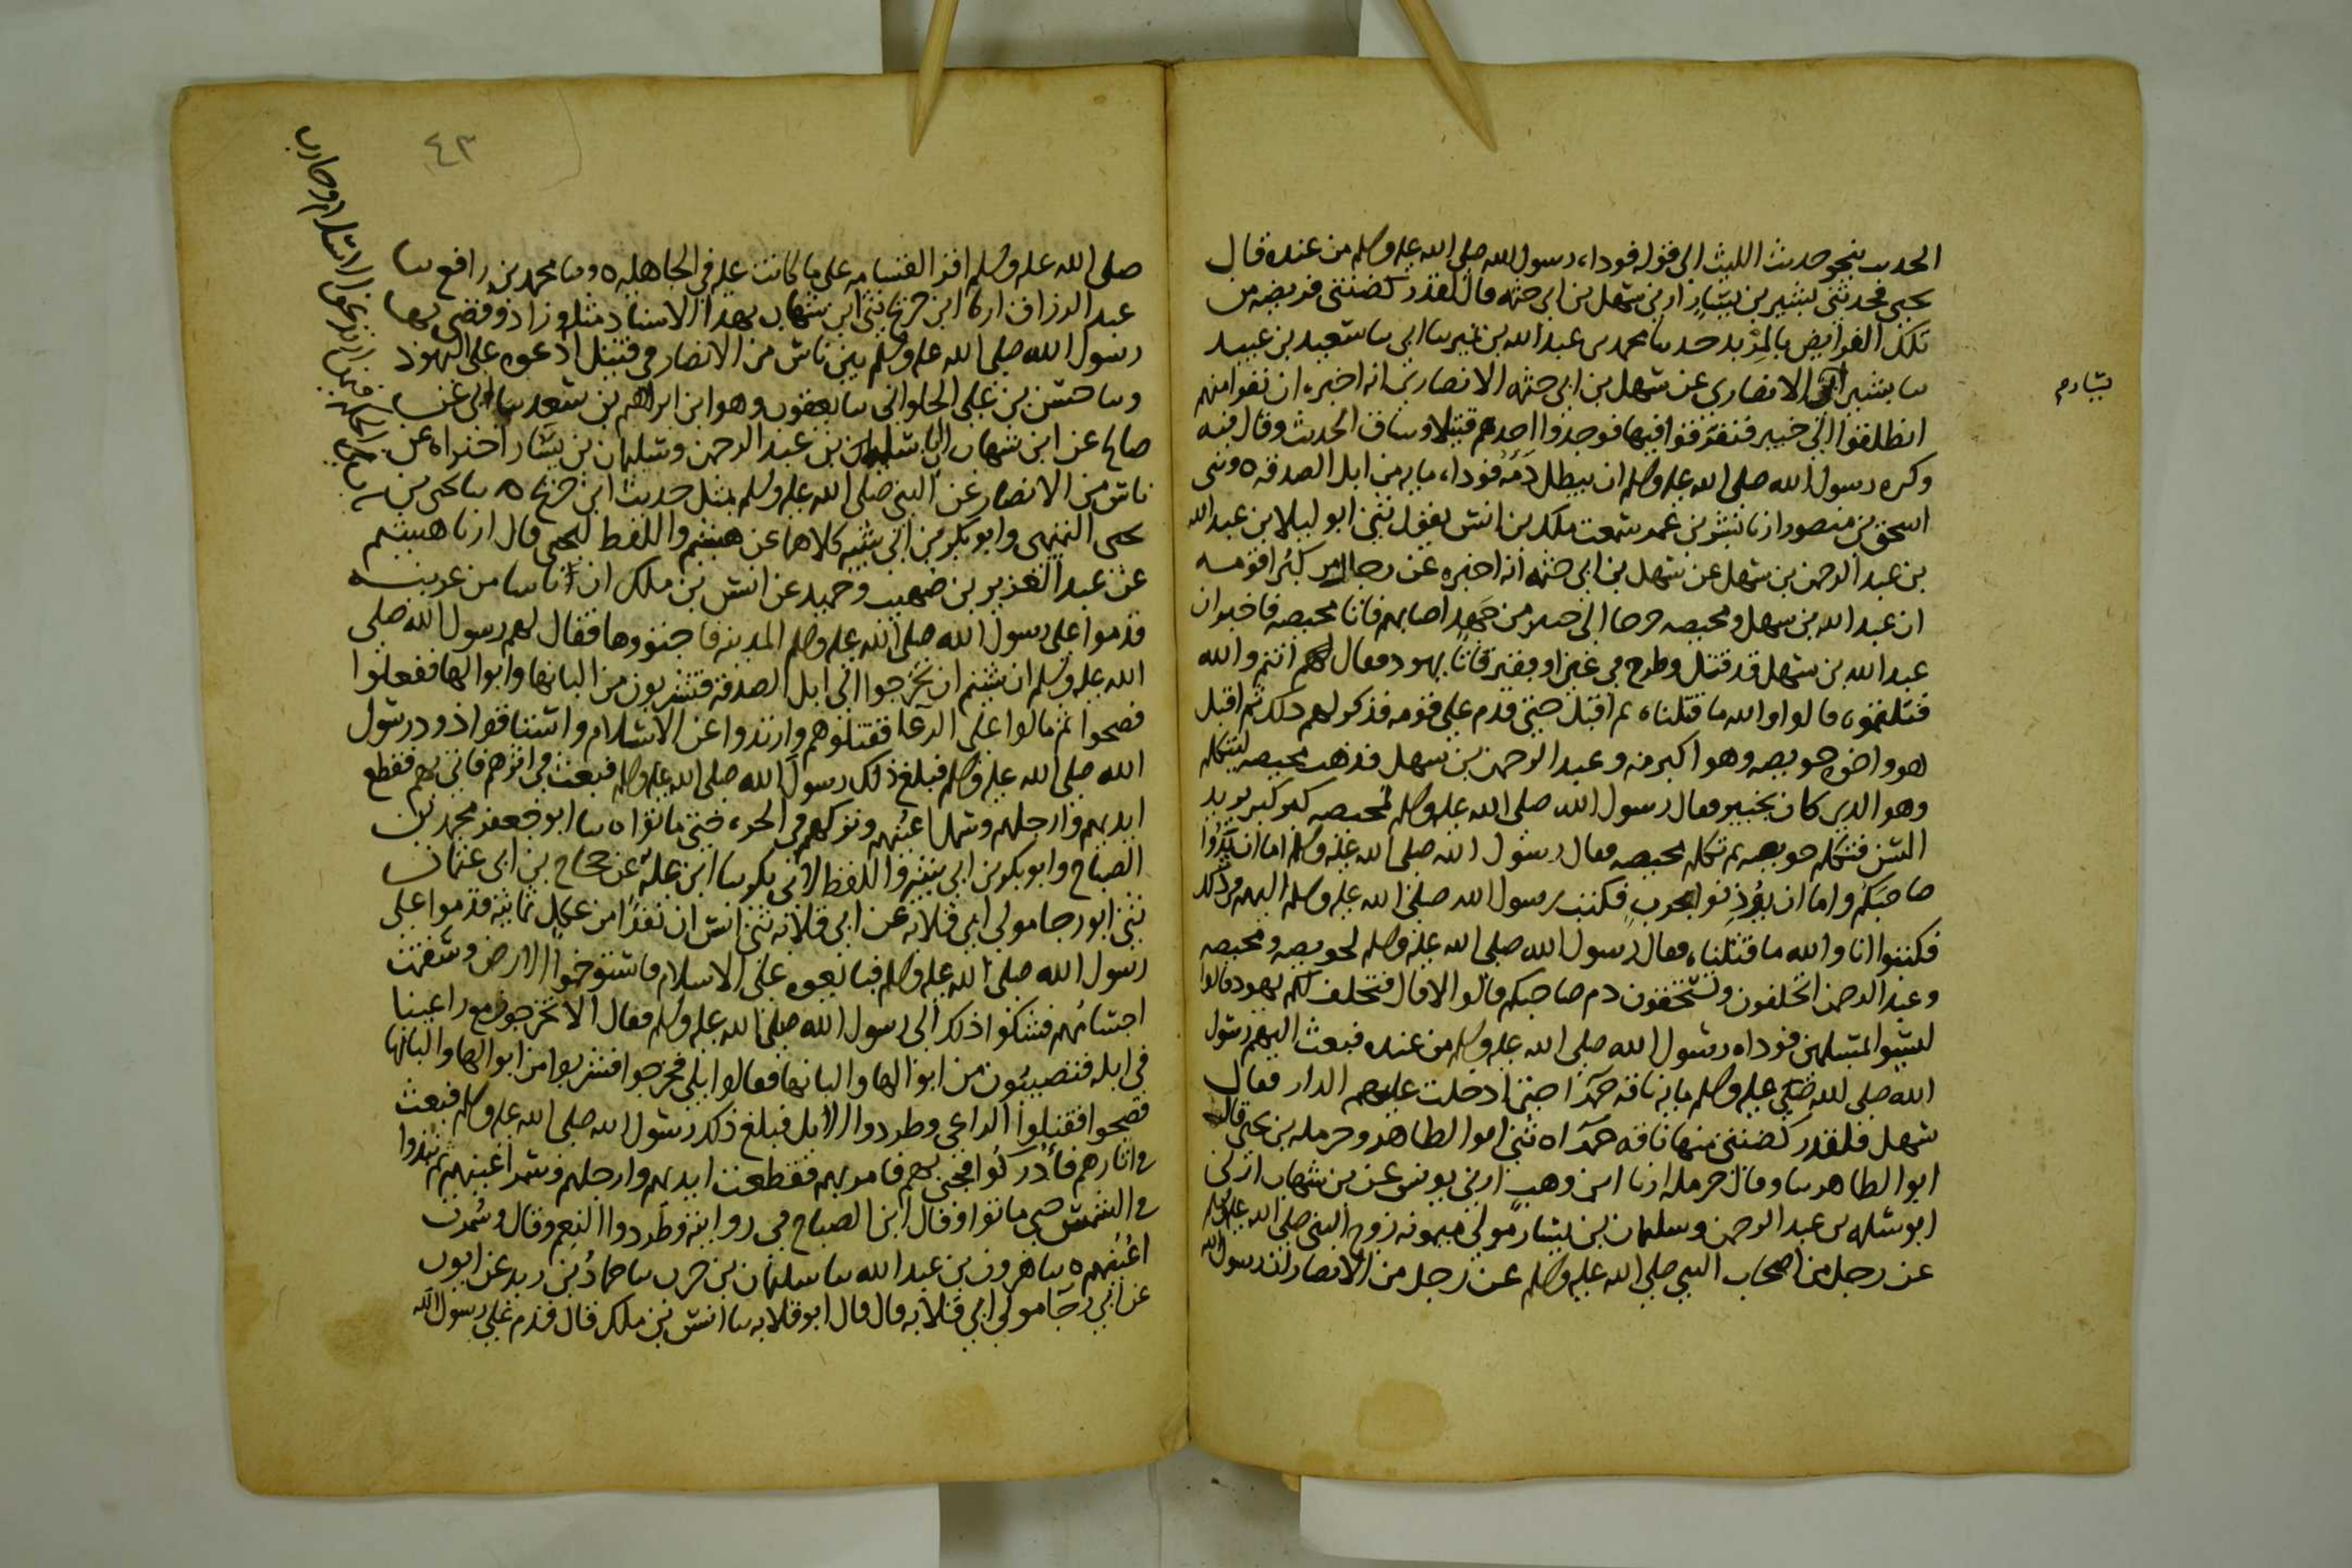 الحدىث بنحو حديث الليث الى قوله فوداه رسول الله صلى الله عليه وسلم من عنده قال
يحيى فحدثنى بشير بن يسار ارنى سهل بن ابى حثمه قال لقد ركضتنى فريضه من
تلك الفرايض بالمربد حدىنا محمد بن عبد الله بن نمير سا ابى سا سعيد بن عبيد
سا بشير الانصارى عن سهل بن ابى حثمه الانصارى انه اخبره ان نفرا منهم
يسار م
انطلقوا الى خيبر فتفرقوا فيها فوجدوا احدهم قتيلا وساق الحديث وقال فيه
وكره رسول الله صلى الله عليه وسلم ان يبطل دمه فوداه مايه من ابل الصدقه ه وثنى
اسحق بن منصور ارنا بشر بن عمر سمعت ملك بن انس يقول ثنى ابو ليلا بن عبد الله
بن عبد الرحمن بن سهل عن سهل بن ابى حثمه انه اخبره عن رجال من كبرا قومه
ان عبد الله بن سهل ومحيصه خرجا الى خيبر من جهد اصابهم فاتا محيصه فاخبر ان
عبد الله بن سهل قد قتل وطرح فى عين او فقير فاتا يهود فقال لهم انتم والله
قتلتموه قالوا والله ما قتلناه ثم اقبل حتى قدم على قومه فذكر لهم ذلك ثم اقبل
هو واخوه حويصه وهو اكبر منه وعبد الرحمن بن سهل فذهب محيصه ليتكلم
وهو الذى كان بخيبر فقال رسول الله صلى الله عليه وسلم لمحيصه كبر كبر يريد
السن فتكلم حويصه ثم تكلم محيصه فقال رسول الله صلى الله عليه وسلم اما ان يدوا
صاحبكم واما ان يوذنوا بحرب فكتب رسول الله صلى الله عليه وسلم اليهم فى ذلك
فكتبوا انا والله ما قتلناه فقال رسول الله صلى الله عليه وسلم لحويصه ومحيصه
وعبد الرحمن اتحلفون وتستحقون دم صاحبكم قالوا لا قال فتحلف لكم يهود قالوا
ليسوا بمسلمين فوداه رسول الله صلى الله عليه وسلم من عنده فبعث اليهم رسول
الله صلى الله عليه وسلم مايه ناقه حمرا حتى ادخلت عليهم الدار فقال
سهل فلقد ركضتنى منها ناقه حمراه ثنى ابو الطاهر وحرمله بن يحيى قال
ابو الطاهر سا وقال حرمله ارنا ابن وهب ارنى يونس عن بن شهاب ارنى
ابو سلمه بن عبد الرحمن وسليمان بن يسار مولى ميمونه زوج النبى صلى الله عليه وسلم
عن رجل من اصحاب النبى صلى الله عليه وسلم من الانصار ان رسول الله
٤٣
صلى الله عليه وسلم اقر القسامه على ما كانت عليه فى الجاهليه ه وسا محمد بن رافع سا
عبد الرزاق ارنا ابن جريج ثنى ابن شهاب بهذا الاسناد مثله وزاد وقضى بها
رسول الله صلى الله عليه وسلم بين ناس من الانصار فى قتيل ادعوه على اليهود
وسا حسن بن على الحلوانى سا يعقوب وهو ابن ابراهيم بن سعد سا ابى عن
صالح عن ابن شهاب ان ابا سلمه بن عبد الرحمن وسليمان بن يسار اخبراه عن
ناس من الانصار عن النبى صلى الله عليه وسلم بمثل حديث ابن جريج ه سا يحيى بن
يحيى التميمى وابو بكر بن ابى شيبه كلاهما عن هشيم واللفظ ليحيى قال ارنا هشيم
عن عبد العزيز بن صهيب وحميد عن انس بن ملك ان اناسا من عرينه
قدموا على رسول الله صلى الله عليه وسلم المدينه فاجتووها فقال لهم رسول الله صلى
الله عليه وسلم ان شيتم ان تخرجوا الى ابل الصدقه فتشربون من البانها وابوالها ففعلوا
فصحوا ثم مالوا على الرعا فقتلوهم وارتدوا عن الاسلام واستاقوا ذود رسول
الله صلى الله عليه وسلم فبلغ ذلك رسول الله صلى الله عليه وسلم فبعث فى اثرهم فاتى بهم فقطع
ايديهم وارجلهم وسمل اعينهم وتركهم فى الحره حتى ماتوا ه سا ابو جعفر محمد بن
الصباح وابو بكر بن ابى شيبه واللفظ لابى بكر سا ابن عليه عن حجاج بن ابى عثمان
ثنى ابو رجا مولى ابى قلابه عن ابى قلابه ثنى انس ان نفرا من عكل ثمانيه قدموا على
رسول الله صلى الله عليه وسلم فبايعوه على الاسلام فاستوخموا الارض وسقمت
اجسامهم فشكوا ذلك الى رسول الله صلى الله عليه وسلم فقال الا تخرجون مع راعينا
فى ابله فتصيبون من ابوالها والبانها فقالوا بلى فخرجوا فشربوا من ابوالها والبانها
فصحوا فقتلوا الراعى وطردوا الابل فبلغ ذلك رسول الله صلى الله عليه وسلم فبعث
فى اثارهم فادركوا فجى بهم فامر بهم فقطعت ايديهم وارجلهم وسمر اعينهم ثم نبذوا
فى الشمس حتى ماتوا وقال ابن الصباح فى روايته وطردوا النعم وقال وسمرت
اعينهم ه سا هرون بن عبد الله سا سليمان بن حرب سا حماد بن زيد عن ايوب
عن ابى رجا مولى ابى قلابه قال قال ابو قلابه سا انس بن ملك قال قدم على رسول الله